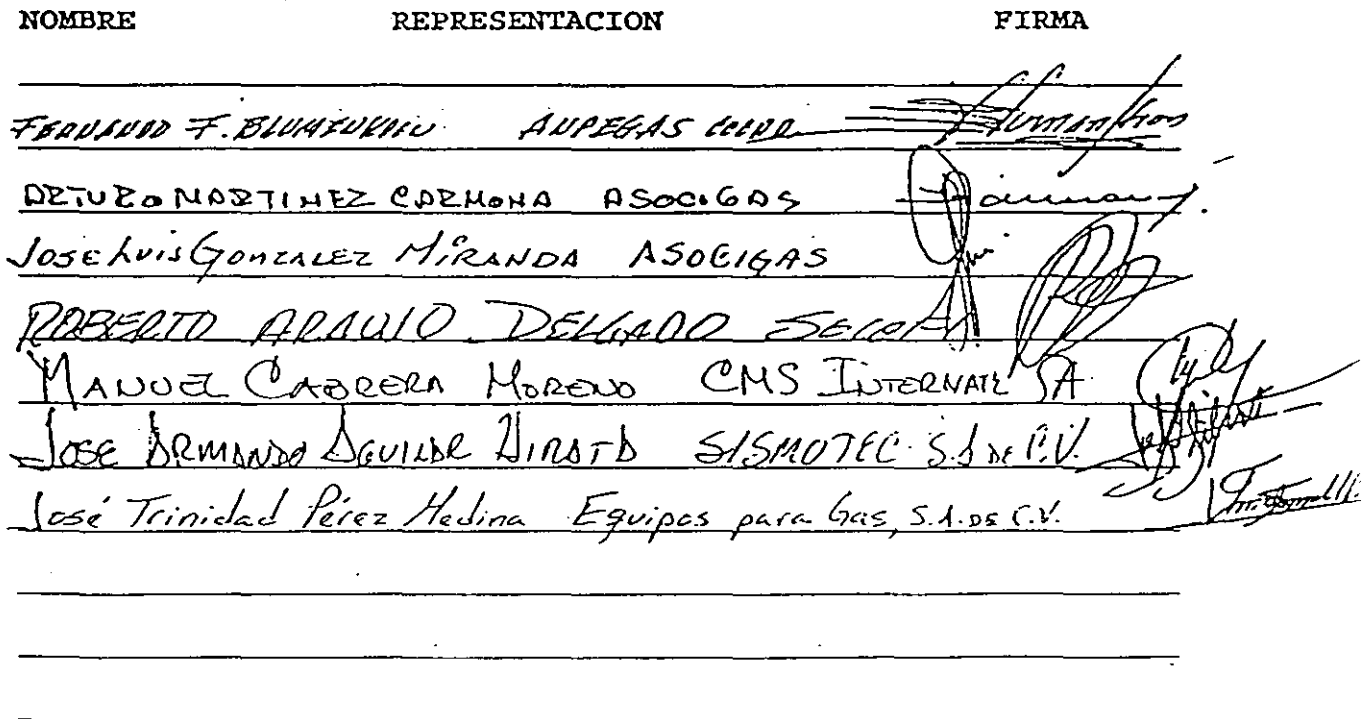 NOMBRE REPRESENTACION FIRMA
FERNANDO F.
ARTURO MARTINEZ CARMONA ASOCIGAS
JOSE LUIS GONZALEZ MIRANDA ASOCIGAS
ROBERTO ARAUJO DELGADO
MANUEL CABRERA MORENO CMS INTERNATL SA
JOSE ARMANDO AGUILAR HIRATA SISMOTEC S.A DE C.V.
José Trinidad Pérez Medina Equipos para Gas, S.A. DE C.V.